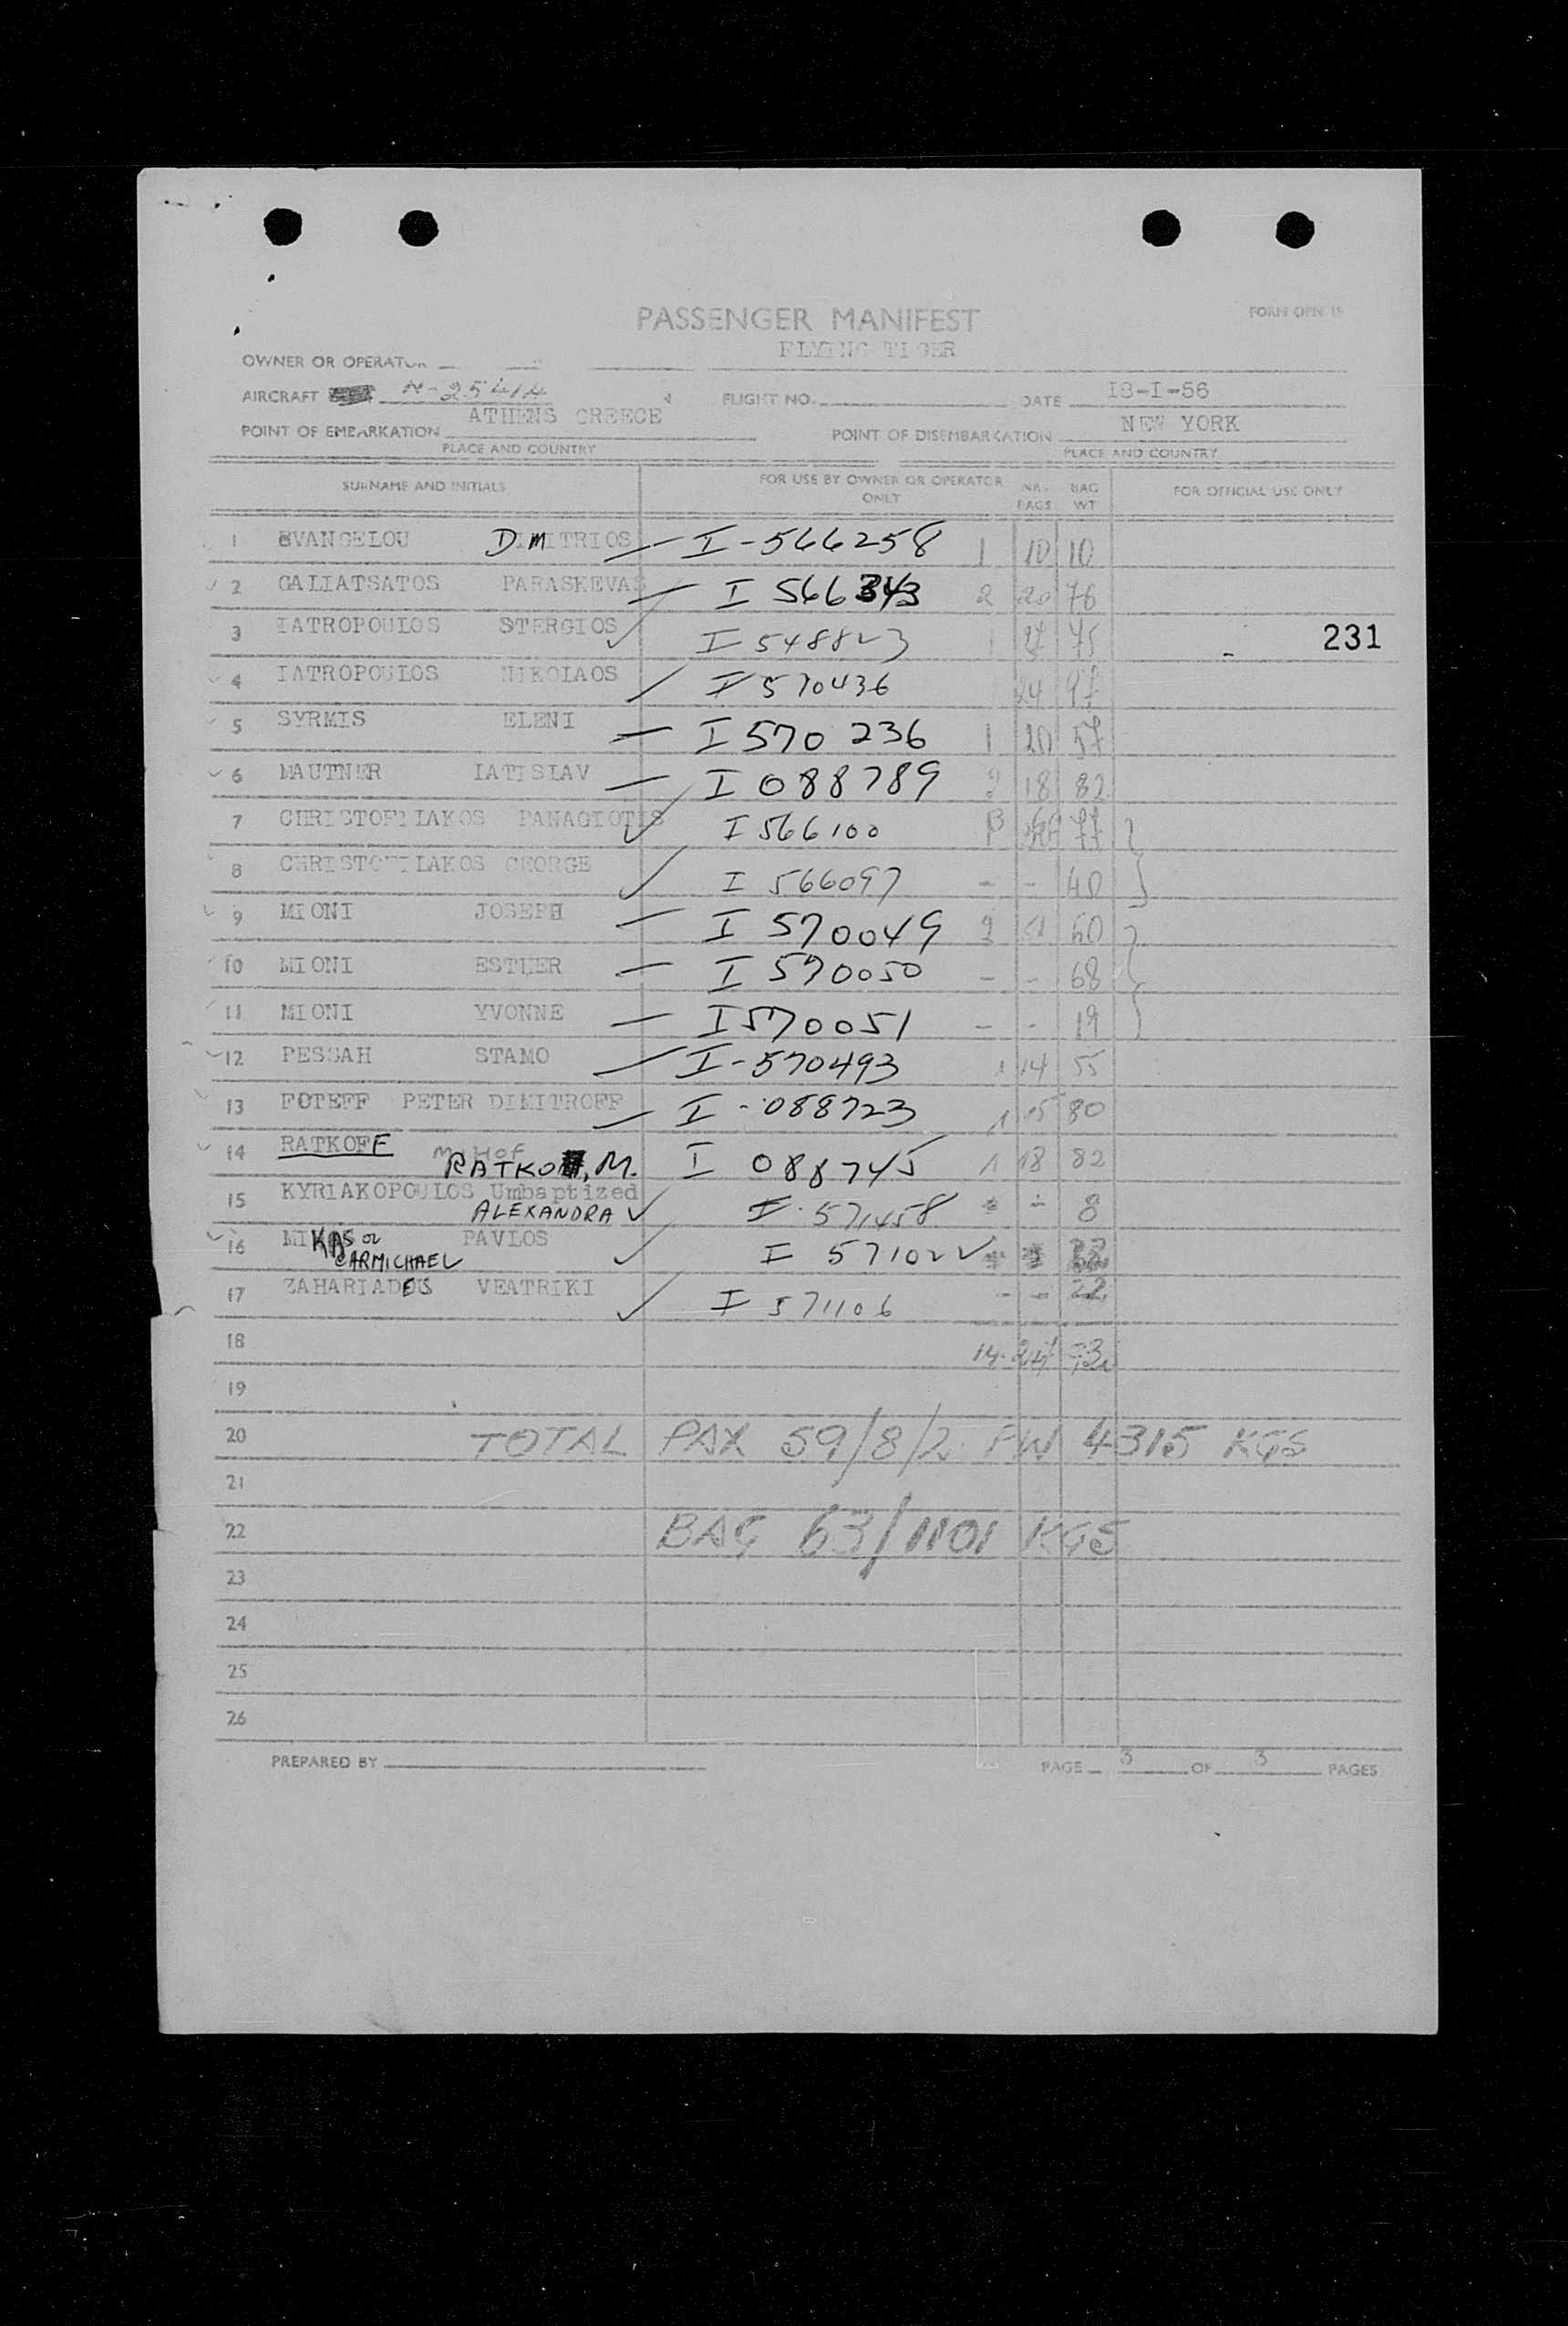 PASSENGER MANIFEST
FORM OPN 19
FLYING TIGER
OWNER OR OPERATOR
AIRCRAFT N-2541A FLIGHT NO. DATE 18-I-56
ATHENS GREECE NEW YORK
POINT OF EMBARKATION POINT OF DISEMBARKATION
PLACE AND COUNTRY PLACE AND COUNTRY
SURNAME AND INITIALS FOR USE BY OWNER OR OPERATOR ONLY NR. BAGS BAG WT FOR OFFICIAL USE ONLY
1 EVANGELOU DIMITRIOS I-566258 1 10 10
2 GALIATSATOS PARASKEVAS I 566343 2 20 76
3 IATROPOULOS STERGIOS I-548823 1 27 75
231
4 IATROPOULOS NIKOLAOS I 570436 24 97
5 SYRMIS ELENI I 570 236 1 20 57
6 MAUTNER IATISLAV I 088789 2 18 82
7 CHRISTOFILAKOS PANAGIOTIS I 566100 77
8 CHRISTOFILAKOS GEORGE I 566097 - - 40
9 MIONI JOSEPH I 570049 60
10 MIONI ESTHER I 570050 - - 68
11 MIONI YVONNE I 570051 - - 19
12 PESSAH STAMO I-570493 1 14 55
13 FOTEFF PETER DIMITROFF I-088723 1 15 80
14 RATKOFF
RATKO, M. I 088745 1 18 82
15 KYRIAKOPOULOS Umbaptized
ALEXANDRA I-571458 - 8
16 MIKAS or PAVLOS I 571022
CARMICHAEL
17 ZAHARIADES VEATRIKI I 571106 - - 22
18
19
20 TOTAL PAX 59/8/2 PW 4315 KGS
21
22 BAG 63/1101 KGS
23
24
25
26
PREPARED BY PAGE 3 OF 3 PAGES